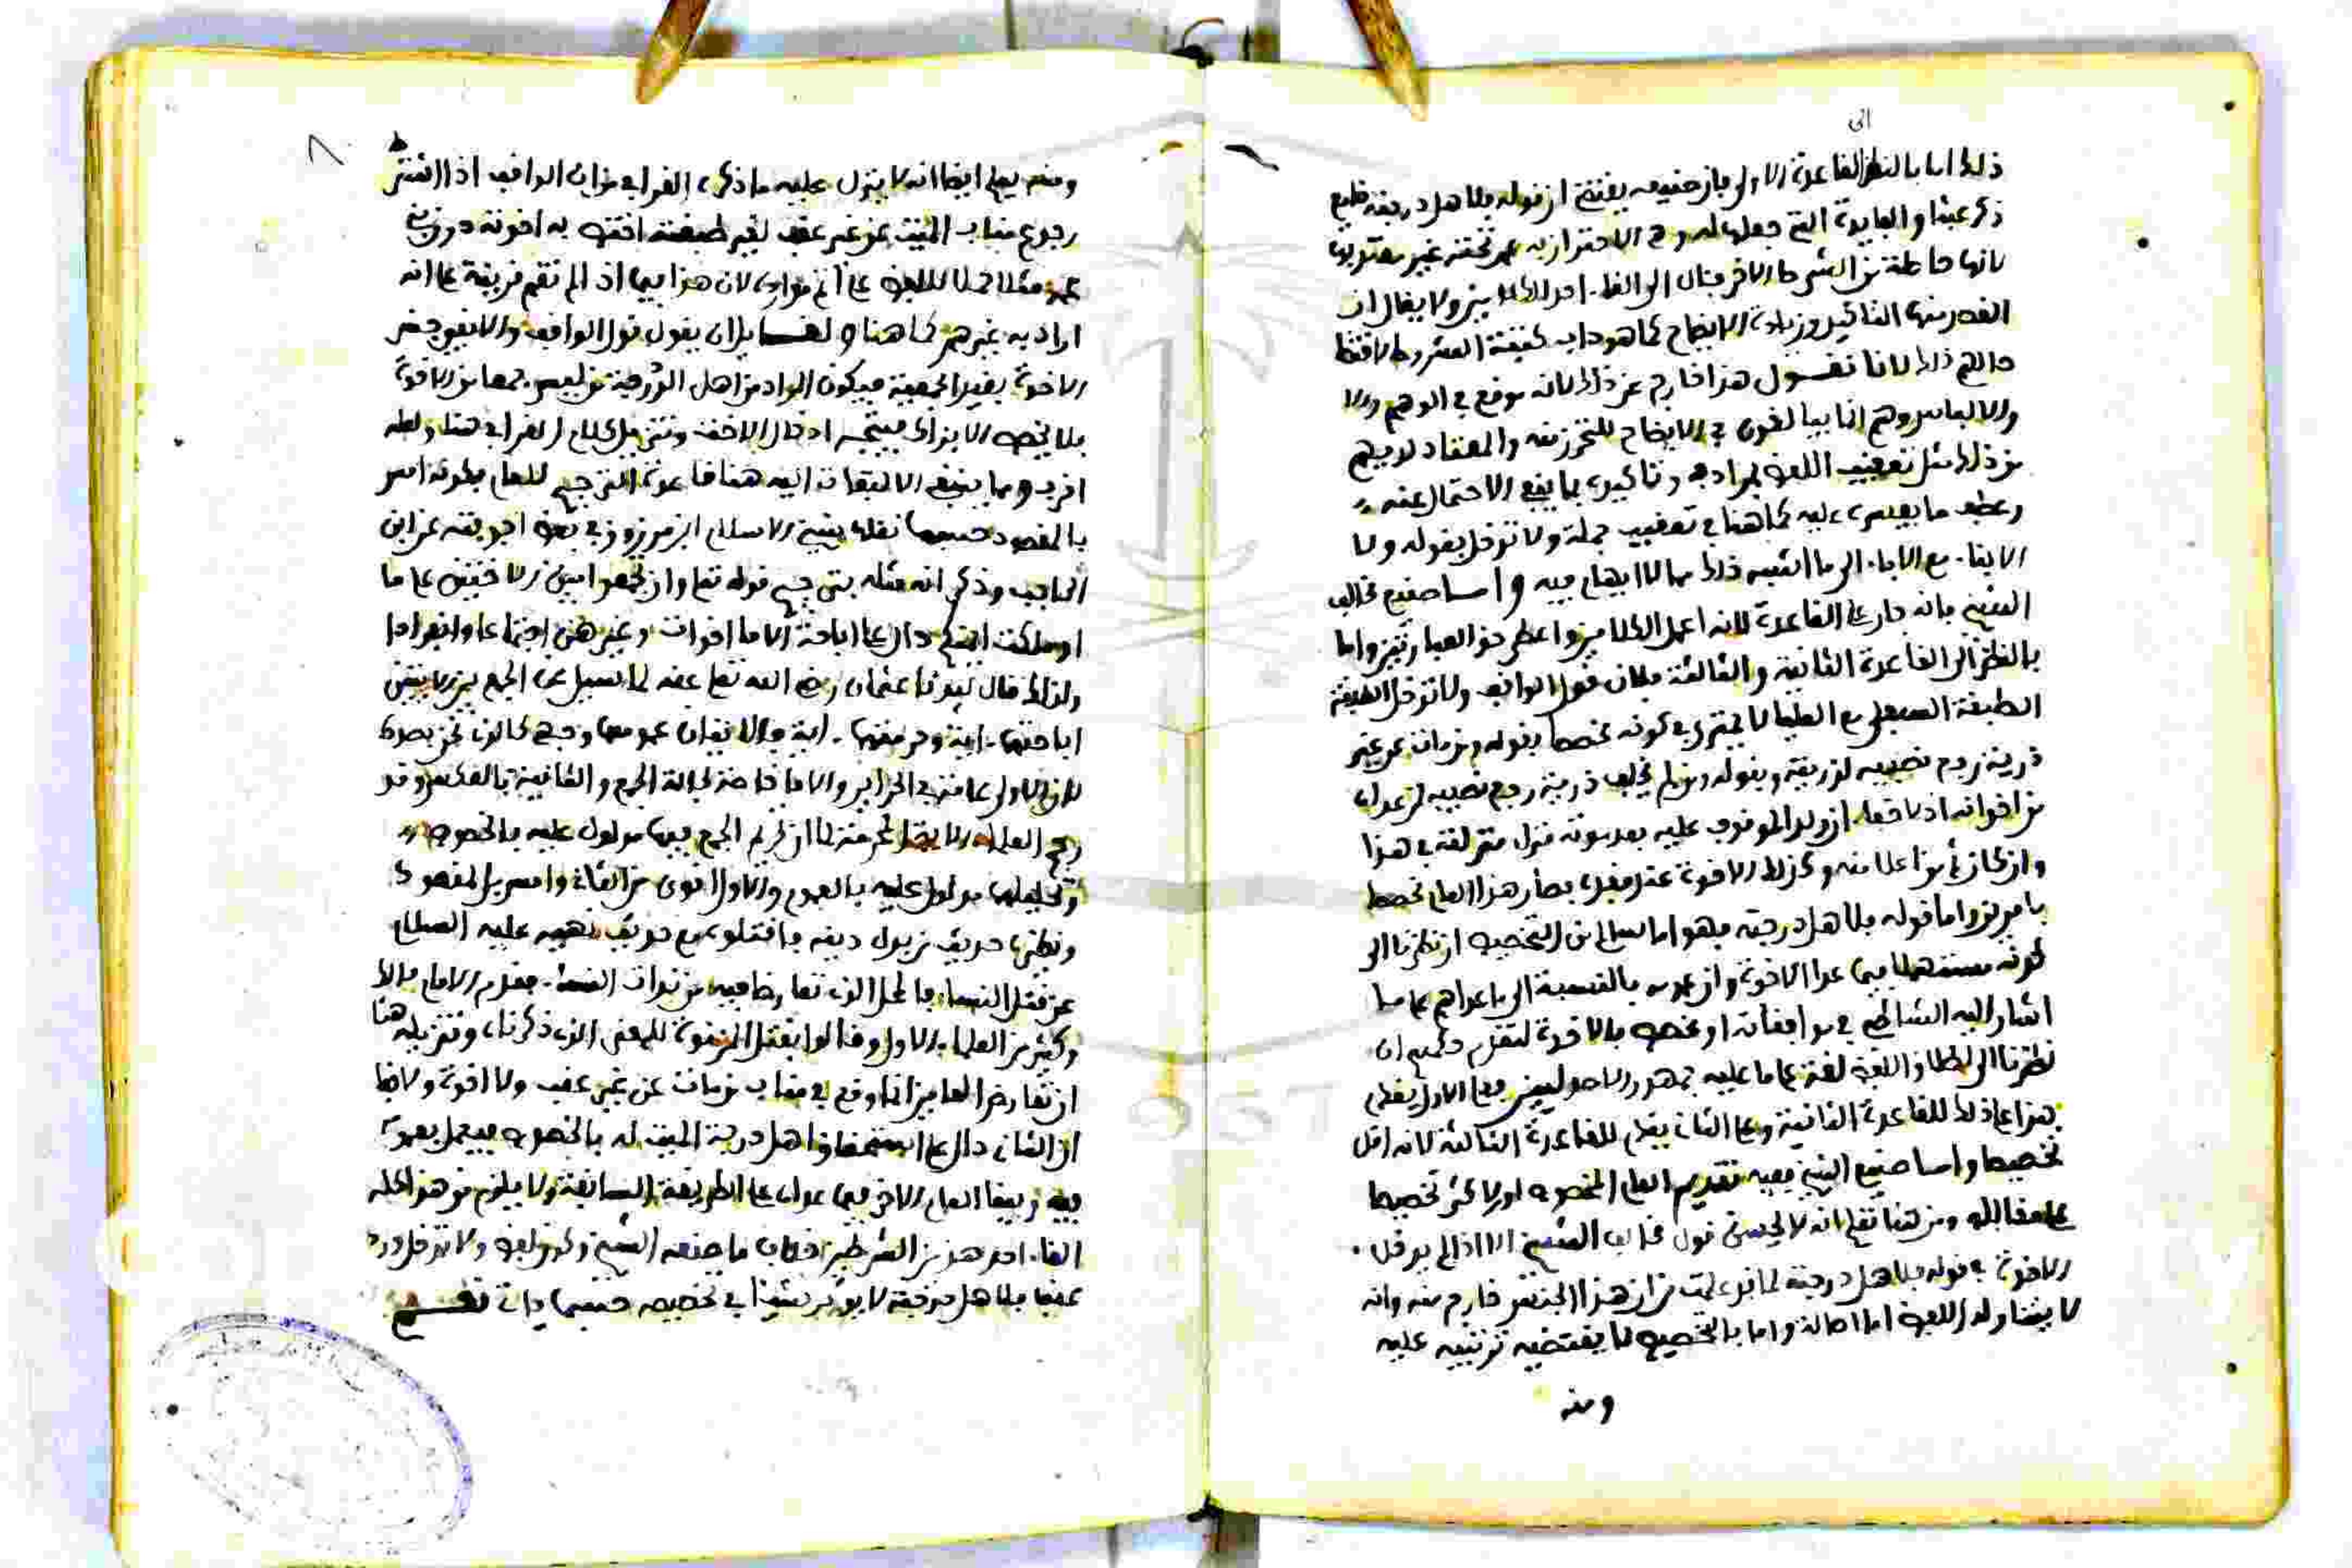 الى
ذلك اما بالنظر القاعدة الاولى فان حقيقه يقتضي ان قوله فلاهل درجته فليع
ذكر عبثا والفايدة التي جعلها له وهي الاحتراز به عمن تحته غير معتد بها
لانها حاصلة من الشرط الاخر فنال الى الغاء احد الكلامين ولا يقال ان
القصد منها التاكيد وزيادة الايضاح كما هو داب كتبة الشروط لاقتضا
حالهم ذلك لانا نقول هذا خارج عن ذلك لانه موقع في الوهم
والالباس وهم انما يبالغون في الايضاح للتحرز منه والمعتاد لديهم
من ذلك مثل تعقيب اللفظ بمرادفه وتاكيده بما ينفي الاحتمال عنه
وعطف ما يعسر عليه كما هنا في تعقيب جملة ولا تدخل بقوله ولا
الابناء مع الاباء الى ما اشبه ذلك مما لا ايهام فيه واما صنيع مخالف
الشيخ فانه جار على القاعدة لانه اعمل الكلامين واعطى حق العبارتين واما
بالنظر الى القاعدة الثانية والثالثة فلان قول الواقف ولا تدخل الطبقة
الطبقة السفلى مع العليا لا يمترى في كونه مخصصا بقوله ومن مات عن غير
ذرية رجع نصيبه لذريته وبقوله ومن لم يخلف ذرية رجع نصيبه لمن عداه
من اخوانه اذ لا خفاء ان ولد الموقوف عليه بعد موته منزل منزلته في هذا
وان كان ثم من اعلا منه وكذلك الاخوة عند فقده فصار هذا العام مخصصا
بامرين واما قوله فلاهل درجته فهو اما سالم من التخصيص ان نظرنا الى
كونه مستعملا فيما عدا الاخوة وان عمومه بالنسبة الى ما عداهم على ما
اشار اليه الشاطبي في موافقاته او مخصص بالاخوة لتقدم حكمهم ان
نظرنا الى اطلاق اللفظ لغة على ما عليه جمهور الاصوليين فعلى الاول يقدم
هذا على ذلك للقاعدة الثانية وعلى الثاني يقدم للقاعدة الثالثة لانه اقل
تخصيصا واما صنيع الشيخ ففيه تقديم العام المخصوص او الاكثر تخصيصا
على مقابله ومن هنا تعلم انه لا يحسن قول مخالف الشيخ الا اذا لم يدخل
الاخوة في قوله فلاهل درجته لما قد علمت من ان هذا الجنس خارج منه وانه
لا يتناوله اللفظ اما اصالة واما بالتخصيص لما يقتضيه ترتيبه عليه
ومنه
ومنه يعلم ايضا انه لا ينزل عليه ما ذكره القرافي من ان الواقف اذا اشترط
رجوع مناب الميت عن غير عقب لغير طبقته اختص به اخوته دون بني
عمه مثلا حملا للفظ على اتم موارده لان هذا فيما اذا لم تقم قرينة على انه
اراد به غيرهم كما هنا ولقائل ان يقول قول الواقف والا بقي بعض
الاخوة بغير الجمعية فيكون المراد من اهل الدرجة من ليس جمعا من الاخوة
فلا يخص الافراد فيتجه ادخال الاخت وتنزيل كلام القرافي هنا ولعله
اقرب ومما ينبغي الالتفات اليه هنا قاعدة الترجيح للعام بكونه امس
بالمقصود حسبما نقله شيخ الاسلام ابن مرزوق في بعض اجوبته عن ابن
الحاجب وذكر انه مثله بترجيح قوله تعالى وان تجمعوا بين الاختين على ما
او ما ملكت ايمانكم دال على اباحة الاما اخوات وغيرهن اجتماعا وانفرادا
ولذلك قال سيدنا عثمان رضي الله تعالى عنه لما سئل عن الجمع بين الاختين
اباحتهما اية وحرمتهما اية والايتان عمومهما وجهي كالذي نحن بصدده
لان الاولى عامة في الحراير والاما خاصة بحالة الجمع والثانية بالعكس وقد
رجح العلماء الايه المحرمة لما ان تحريم الجمع فيها مدلول عليه بالخصوص
وتحليلها مدلول عليه بالعموم والاول اقوى من الثاني وامس بالمقصود
ونظيره حديث من بدل دينه فاقتلوه مع حديث نهيه عليه السلام
عن قتل النساء فالمحل الذي تعارضا فيه من بدلت النساء فقدم الامام مالك
وكثير من العلماء الاول وقالوا بقتل المرتدة للمعنى الذي ذكرناه وتنزيله هنا
ان تعارض العامين انما وقع في مناب من مات عن غير عقب ولا اخوة ولا خفا
ان الثاني دال على استحقاق اهل درجة الميت له بالخصوص فيعمل بعمومه
فيه ويبقا العام الاخر فيما عداه على الطريقة السابقة ولا يلزم من هذا كله
الغاء احد هذين الشرطين خلاف ما صنعه الشيخ وكون لفظ ولا تدخل ورد
عقب فلاهل درجته لا يوثر شيئا في تخصيصه حسبما يات تقسيم